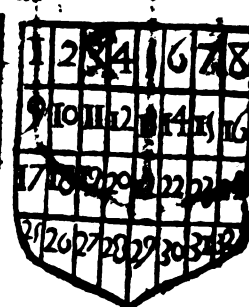 1 2 3 4 6 7 8
9 10 11 12 14 15 16
17 18 19 20 22 23
25 26 27 28 29 30 31 32